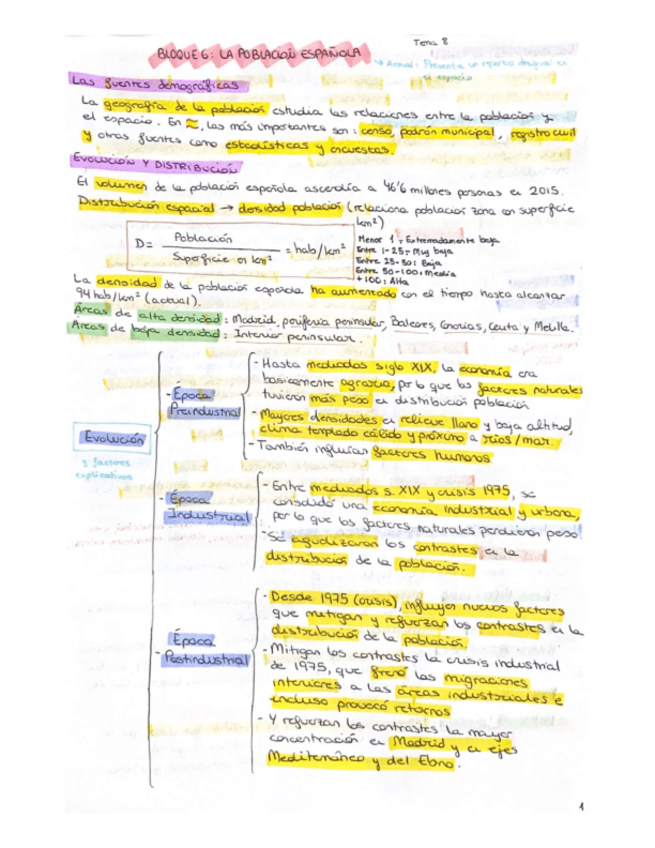 Tema 8
BLOQUE 6: LA POBLACIÓN ESPAÑOLA
→ Actual: Presenta un reparto desigual en
el espacio
Las fuentes demográficas
La geografía de la población estudia las relaciones entre la población y
el espacio. En, las más importantes son: censo, padrón municipal, registro civil
y otras fuentes como estadísticas y encuestas.
EVOLUCIÓN Y DISTRIBUCIÓN
El volumen de la población española ascendía a 46'6 millones personas en 2015.
Distribución espacial → densidad población (relaciona población zona con superficie
km²)
D = Población / Superficie en km² = hab/km²
Menor 1: Extremadamente baja
Entre 1-25: Muy baja
Entre 25-50: Baja
Entre 50-100: Media
+100: Alta
La densidad de la población española ha aumentado con el tiempo hasta alcanzar
94 hab/km² (actual).
Áreas de alta densidad: Madrid, periferia peninsular, Baleares, Canarias, Ceuta y Melilla.
Áreas de baja densidad: Interior peninsular.
Evolución
y factores
explicativos
- Época
Preindustrial
- Hasta mediados siglo XIX, la economía era
básicamente agraria, por lo que los factores naturales
tuvieron más peso en distribución población
- Mayores densidades en relieve llano y baja altitud,
clima templado cálido y próximo a ríos/mar.
- También influían factores humanos
- Época
Industrial
- Entre mediados s. XIX y crisis 1975, se
consolidó una economía industrial y urbana,
por lo que los factores naturales perdieron peso.
- Se agudizaron los contrastes en la
distribución de la población.
- Época
Postindustrial
- Desde 1975 (crisis), influyen nuevos factores
que mitigan y refuerzan los contrastes en la
distribución de la población.
- Mitigan los contrastes la crisis industrial
de 1975, que frenó las migraciones
interiores a las áreas industriales e
incluso provocó retornos
- Y refuerzan los contrastes la mayor
concentración en Madrid y en ejes
Mediterráneo y del Ebro.
1